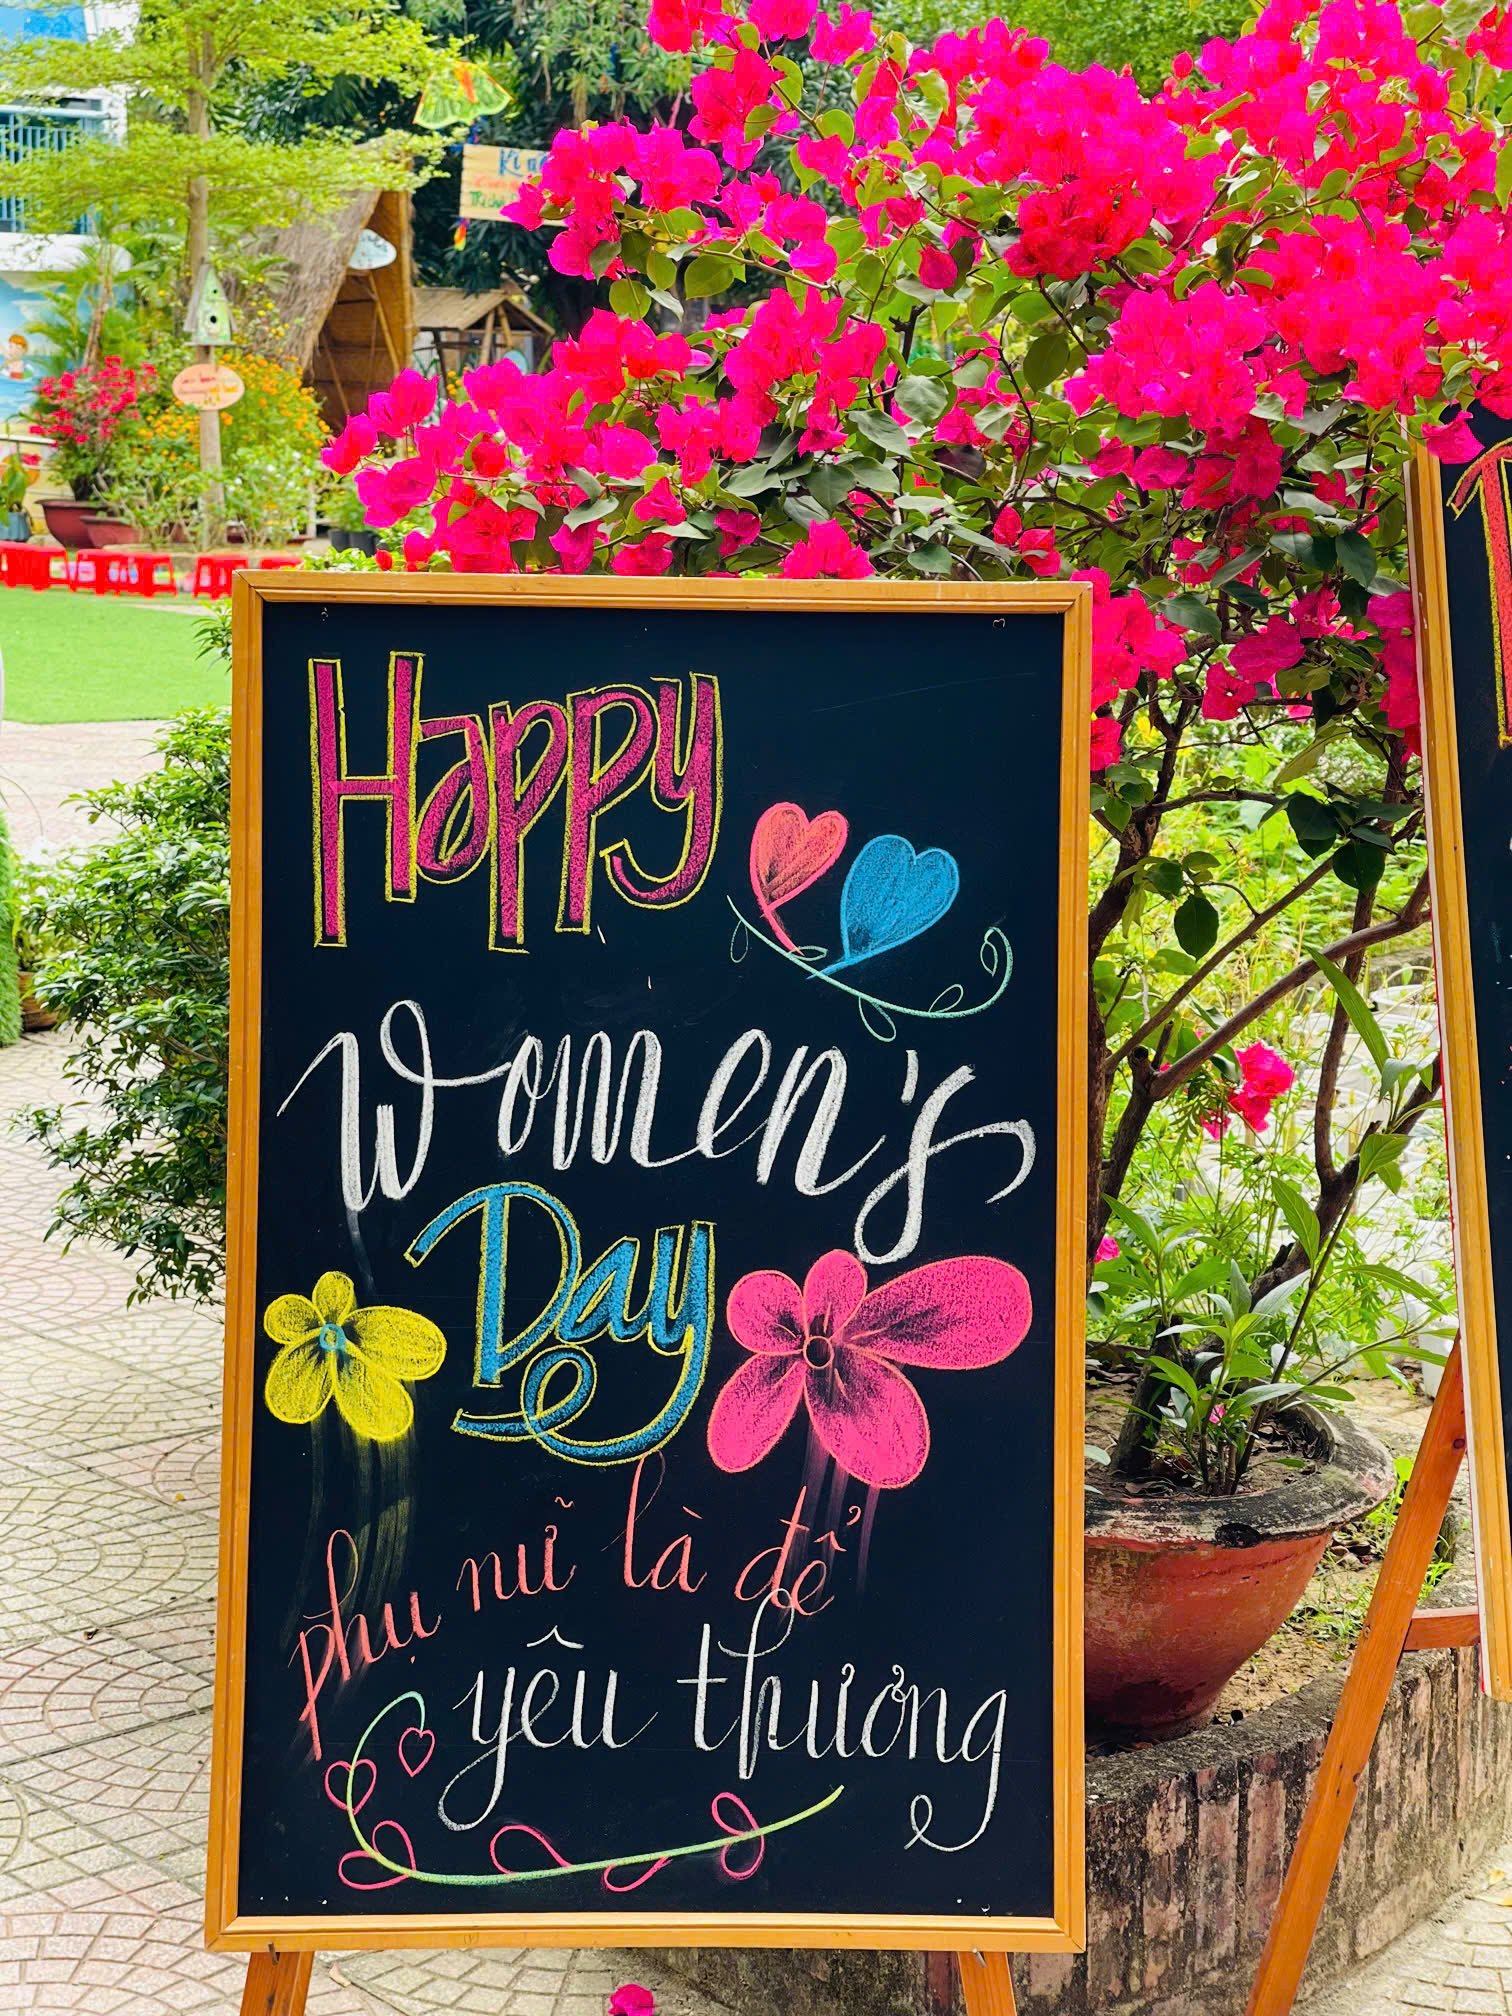 Happy
Women's
Day
phụ nữ là để
yêu thương